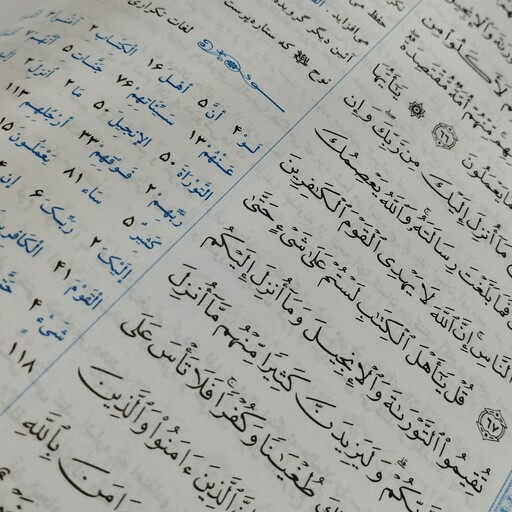 لَأَكَلُوا۟ مِن
مِّنْهُمْ أُمَّةٌ مُّقْتَصِدَةٌ
يَعْمَلُونَ ﴿٦٦﴾ يَـٰٓأَيُّهَا
مَآ أُنزِلَ إِلَيْكَ مِن رَّبِّكَ وَإِن
فَمَا بَلَّغْتَ رِسَالَتَهُۥ وَٱللَّهُ يَعْصِمُكَ
ٱلنَّاسِ إِنَّ ٱللَّهَ لَا يَهْدِى ٱلْقَوْمَ ٱلْكَـٰفِرِينَ
﴿٦٧﴾ قُلْ يَـٰٓأَهْلَ ٱلْكِتَـٰبِ لَسْتُمْ عَلَىٰ شَىْءٍ حَتَّىٰ
تُقِيمُوا۟ ٱلتَّوْرَىٰةَ وَٱلْإِنجِيلَ وَمَآ أُنزِلَ إِلَيْكُم
وَلَيَزِيدَنَّ كَثِيرًا مِّنْهُم مَّآ أُنزِلَ
طُغْيَـٰنًا وَكُفْرًا فَلَا تَأْسَ عَلَى
ٱلَّذِينَ ءَامَنُوا۟ وَٱلَّذِينَ
ءَامَنَ بِٱللَّهِ
می‌افزاید
آئین دیگر گرویده
نوح که ستاره پرست
لغات تکراری
لَوْ ۴ أَنَّ ۵ أَهْلَ ۱۶ الْكِتَابِ ۲
عَنْهُمْ ۱۳ سَيِّئَاتِهِمْ ۷۶ جَنَّاتِ ۵
التَّوْرَاةَ ۵۰ الإنْجِيلَ ۵۰ مَا ۲
رَبِّهِمْ ۲ فَوْقِهِمْ ۳۳ أَرْجُلِهِمْ ۱۱۳
كَثِيرٌ ۵ سَاءَ ۸۱ يَعْمَلُونَ ۱۵
إِلَيْكَ ۲ رَبِّكَ ۶ إِنْ
الْقَوْمَ ۴۱ الْكَافِرِينَ
شَيْءٍ ۴
۱۱۸